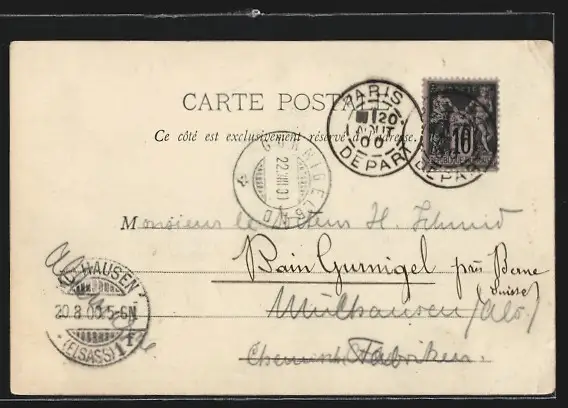 CARTE POSTALE
Ce côté est exclusivement réservé à l'adresse.
PARIS
20
AOUT
00
DEPART
10
DEPART
GURNIGELBAD
22.VIII.00
Monsieur le H. Schmid
Bain Gurnigel près Berne
Suisse
Mülhausen (Als.)
Fabriken.
HAUSEN
20.8.00.5-6N.
(ELSASS) 1